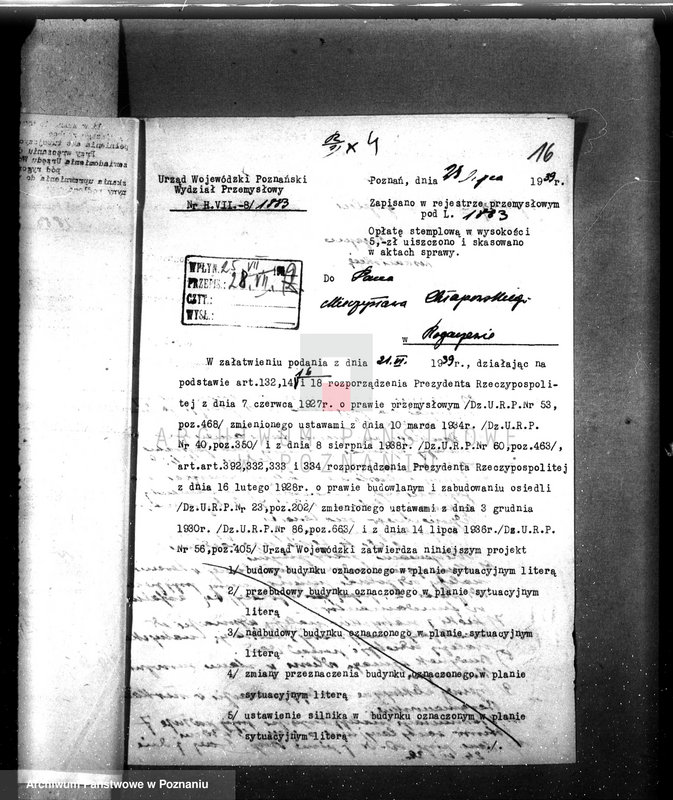 16
Urząd Wojewódzki Poznański
Wydział Przemysłowy
Nr H.VII.-8/1883
Poznań, dnia 1939r.
Zapisano w rejestrze przemysłowym
pod L. 1883
Opłatę stemplową w wysokości
5,-zł uiszczono i skasowano
w aktach sprawy.
WPŁYN. 25 VII
PRZEPIS.: 28.VII.
CZYT.:
WYSŁ.:
Do Pana
Mieczysława Chłapowskiego
w
W załatwieniu podania z dnia 21.VI. 1939r., działając na
podstawie art.132,14, 16 i 18 rozporządzenia Prezydenta Rzeczypospoli-
tej z dnia 7 czerwca 1927r. o prawie przemysłowym /Dz.U.R.P.Nr 53,
poz.468/ zmienionego ustawami z dnia 10 marca 1934r. /Dz.U.R.P.
Nr 40,poz.350/ i z dnia 8 sierpnia 1938r. /Dz.U.R.P.Nr 60,poz.463/,
art.art.392,332,333 i 334 rozporządzenia Prezydenta Rzeczypospolitej
z dnia 16 lutego 1928r. o prawie budowlanym i zabudowaniu osiedli
/Dz.U.R.P.Nr 23,poz.202/ zmienionego ustawami z dnia 3 grudnia
1930r. /Dz.U.R.P.Nr 86,poz.663/ i z dnia 14 lipca 1936r./Dz.U.R.P.
Nr 56,poz.405/ Urząd Wojewódzki zatwierdza niniejszym projekt
1/ budowy budynku oznaczonego w planie sytuacyjnym literą
2/ przebudowy budynku oznaczonego w planie sytuacyjnym
literą
3/ nadbudowy budynku oznaczonego w planie sytuacyjnym
literą
4/ zmiany przeznaczenia budynku oznaczonego w planie
sytuacyjnym literą
5/ ustawienie silnika w budynku oznaczonym w planie
sytuacyjnym literą
./.
ARCHIWUM PAŃSTWOWE
W POZNANIU
Archiwum Państwowe w Poznaniu
Archiwum Państwowe w Poznaniu